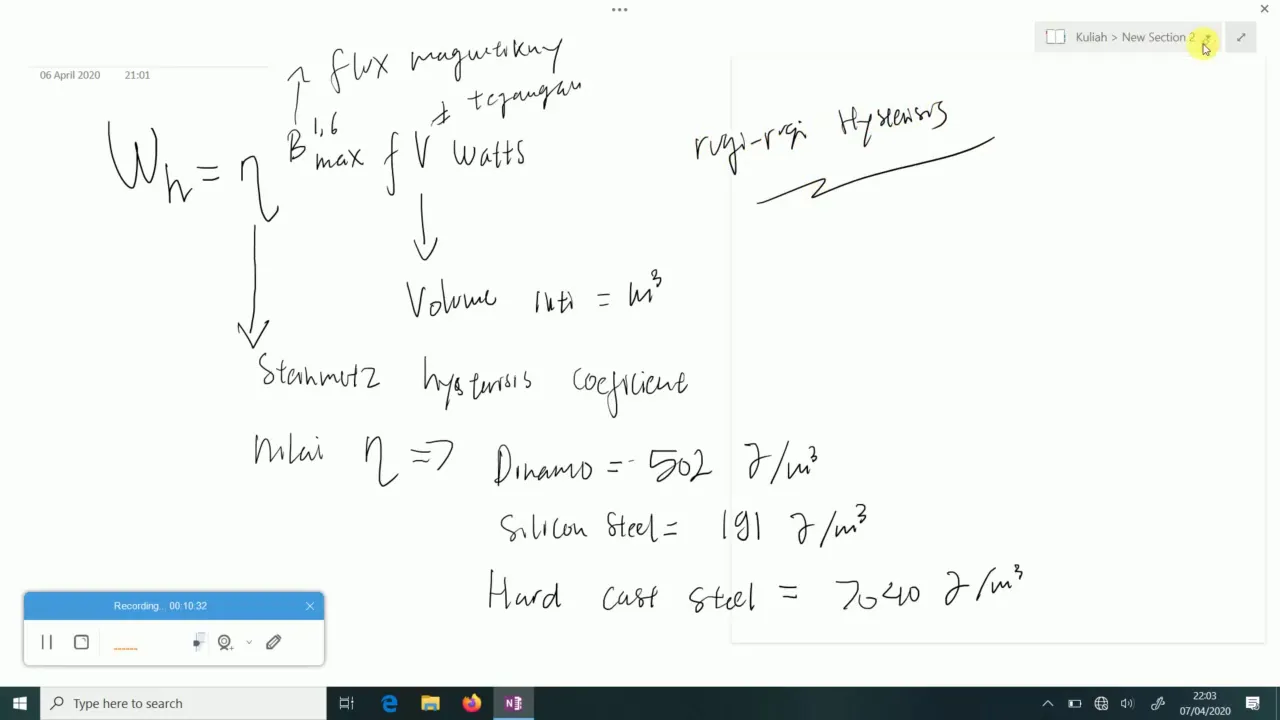 Kuliah > New Section 2
06 April 2020 21:01
flux magnetikny
tegangan
Wh = η B max 1,6 f V watts
rugi-rugi Hysterisis
Volume inti = m³
Steinmetz hysterisis coeficient
Nilai η => Dinamo = 502 J/m³
Silicon Steel = 191 J/m³
Hard cast steel = 7040 J/m³
Recording... 00:10:32
Type here to search
22:03
07/04/2020